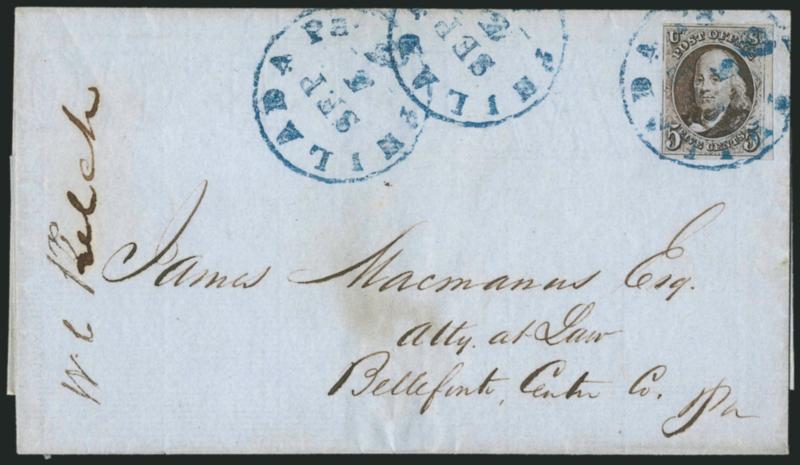 PHILADA Pa
SEP
PHILADA
SEP
U S
POST OFFICE
FIVE CENTS
5 5
James Macmanus Esq.
Atty. at Law
Bellefonte, Centre Co. Pa
W C